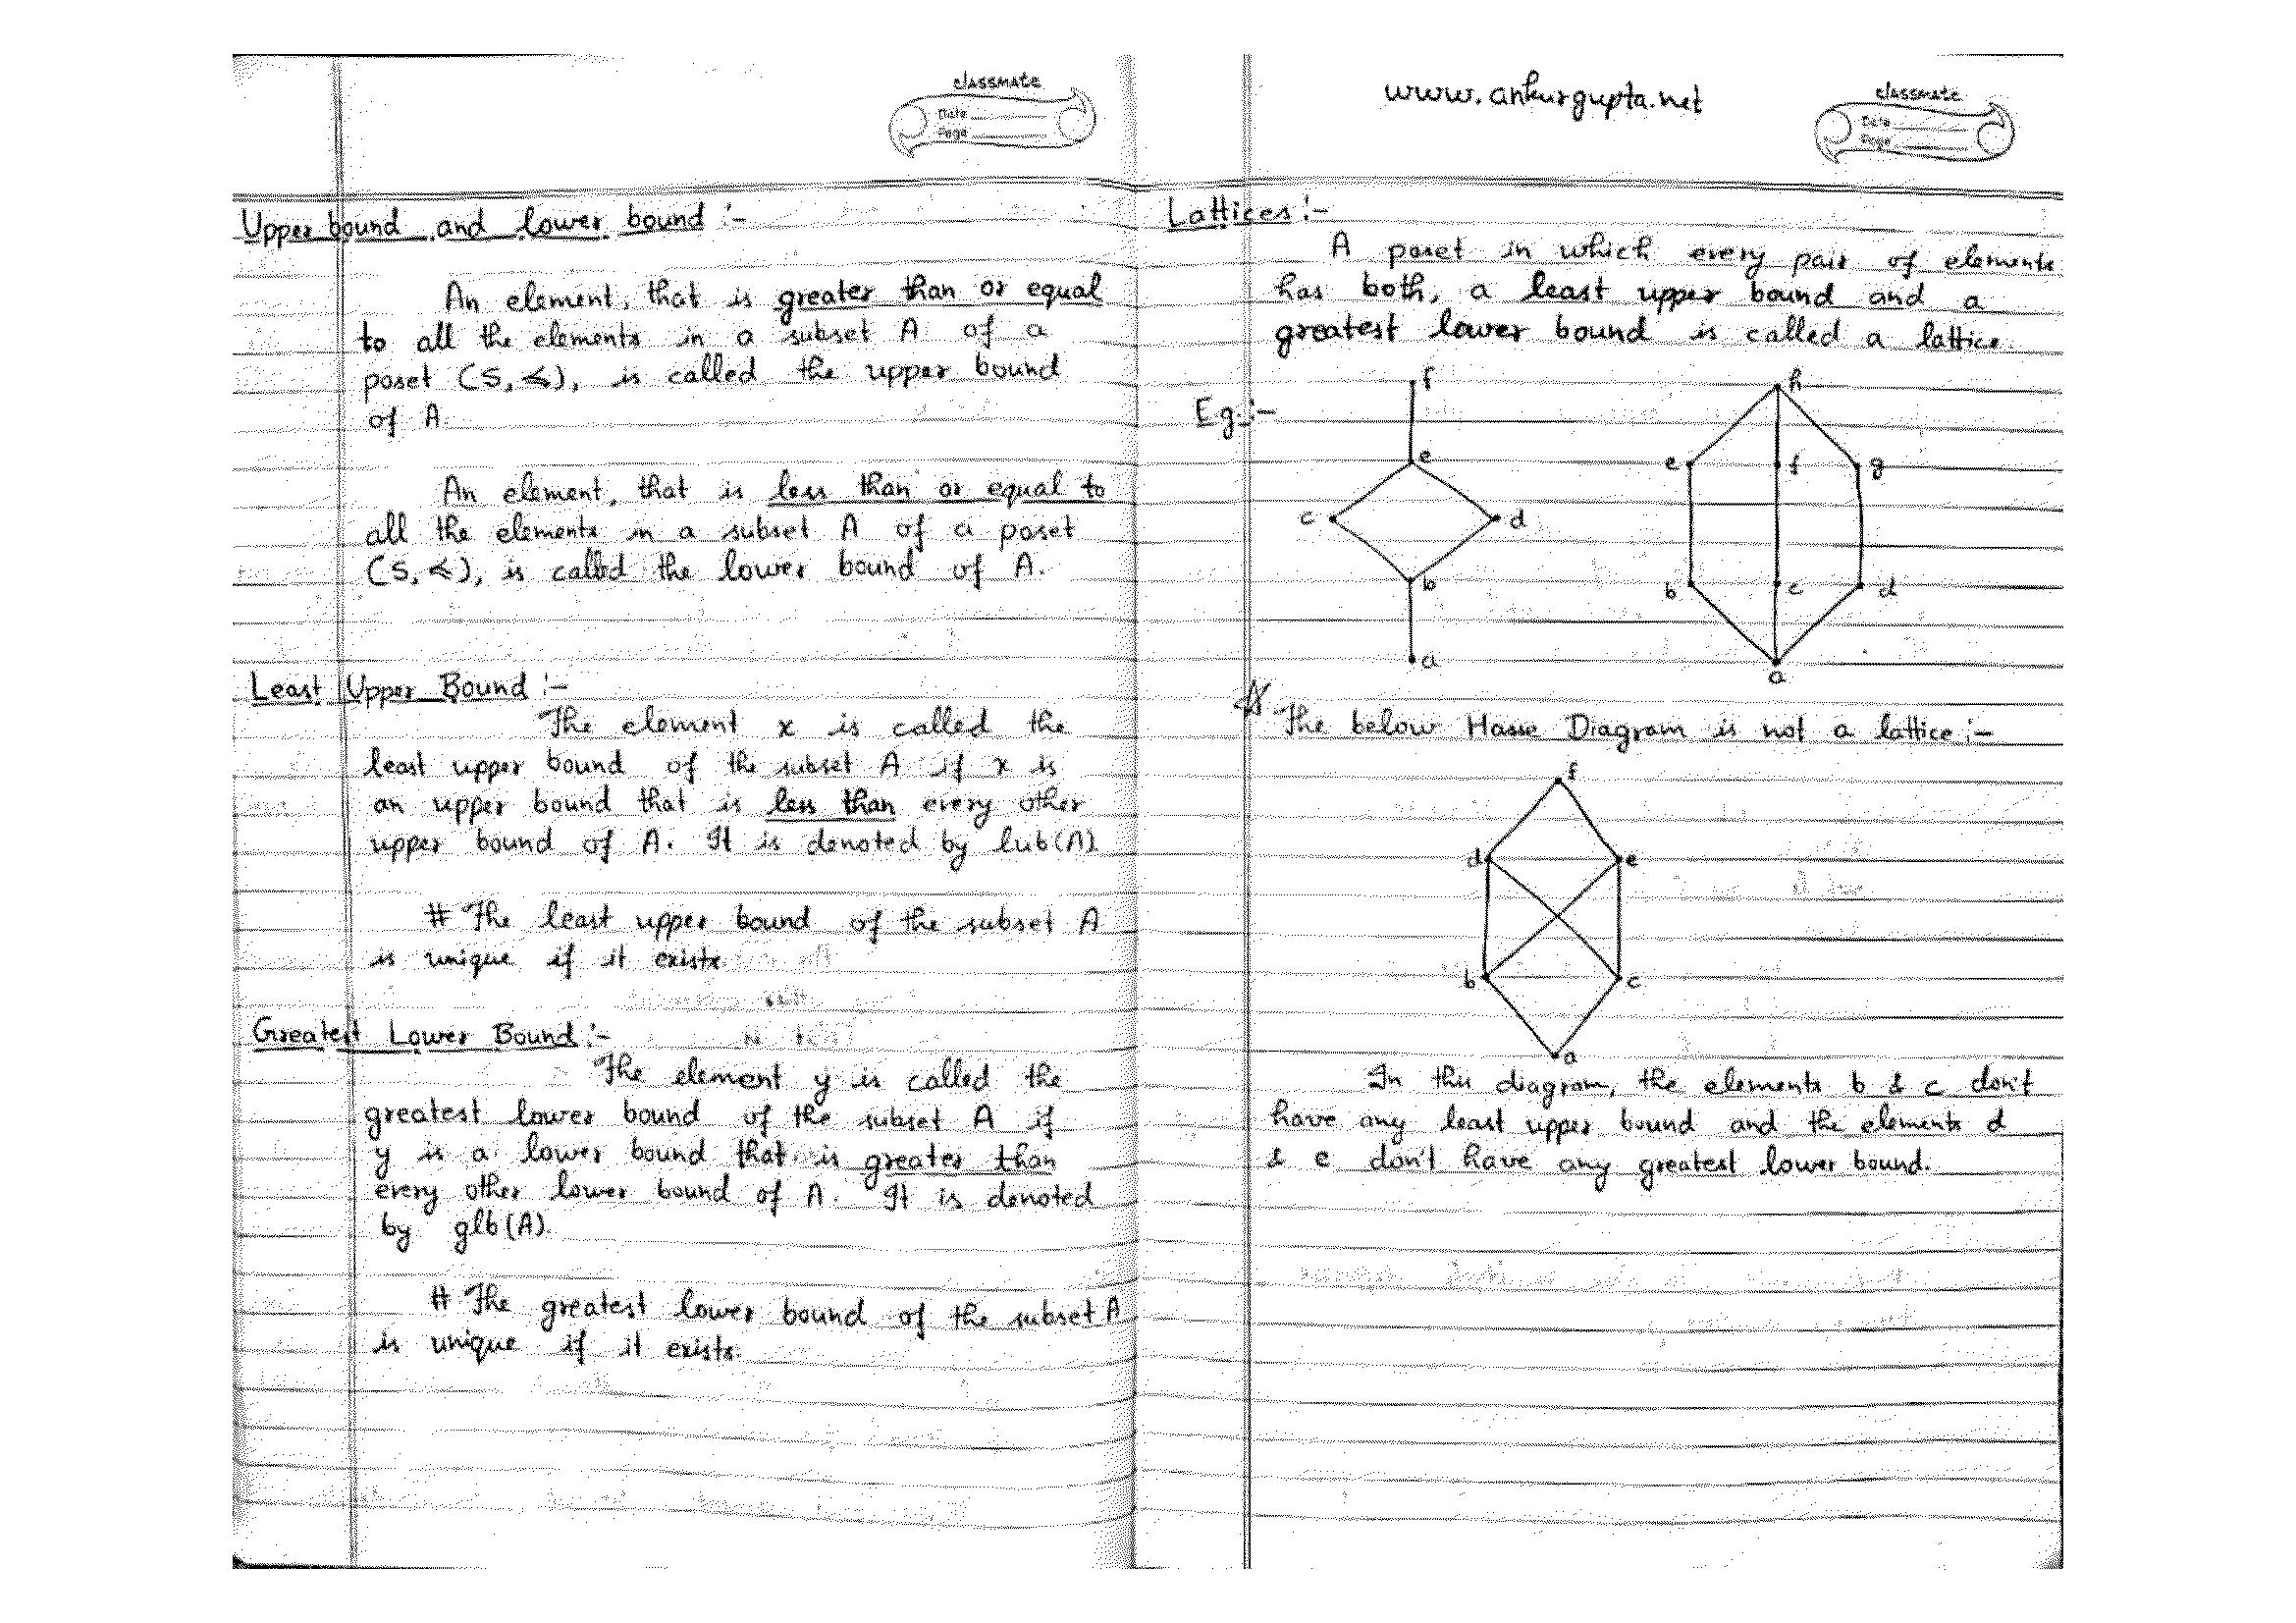 classmate
Date
Page
Upper bound and lower bound :-
An element, that is greater than or equal
to all the elements in a subset A of a
poset (S, ≼), is called the upper bound
of A.
An element, that is less than or equal to
all the elements in a subset A of a poset
(S, ≼), is called the lower bound of A.
Least Upper Bound :-
The element x is called the
least upper bound of the subset A if x is
an upper bound that is less than every other
upper bound of A. It is denoted by lub(A)
# The least upper bound of the subset A
is unique if it exists
Greatest Lower Bound :-
The element y is called the
greatest lower bound of the subset A if
y is a lower bound that is greater than
every other lower bound of A. It is denoted
by glb(A).
# The greatest lower bound of the subset A
is unique if it exists.
www.ankurgupta.net
classmate
Date
Page
Lattices :-
A poset in which every pair of elements
has both, a least upper bound and a
greatest lower bound is called a lattice.
Eg :-
f
e
c d
b
a
h
e f g
b c d
a
The below Hasse Diagram is not a lattice :-
f
d e
b c
a
In this diagram, the elements b & c don't
have any least upper bound and the elements d
& e don't have any greatest lower bound.